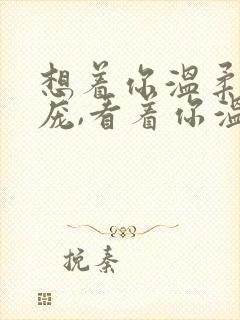 想着你温柔
庞,看着你温
挽秦